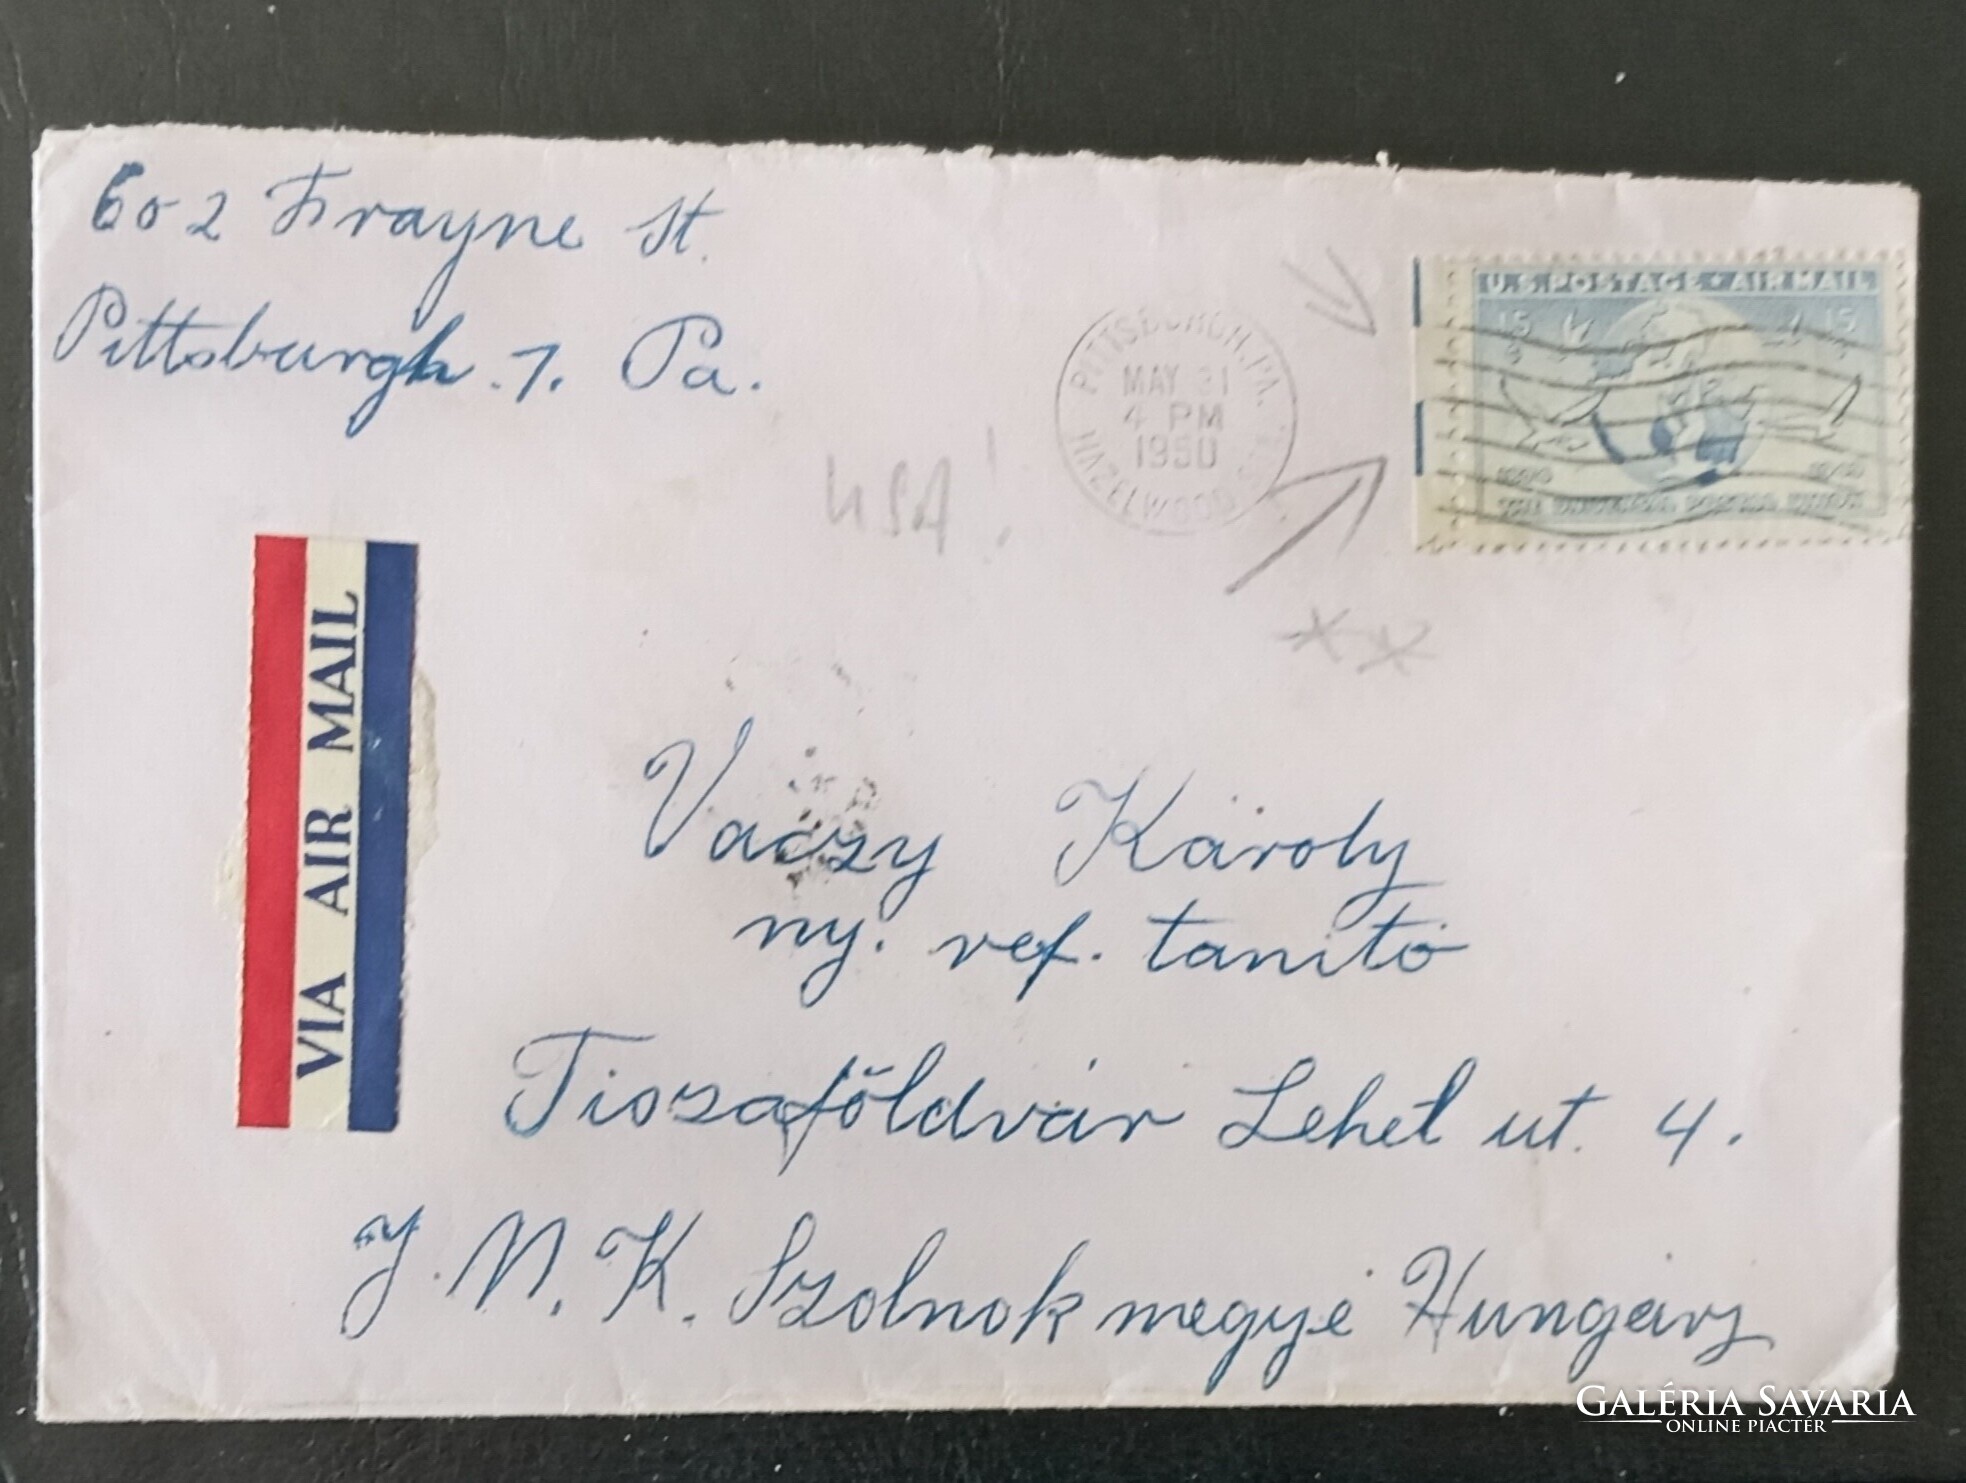 602 Frayne St.
Pittsburgh. 7. Pa.
USA!
PITTSBURGH, PA.
MAY 31
4 PM
1950
HAZELWOOD STA.
U.S. POSTAGE • AIR MAIL
15 15
1949
THE UNIVERSAL POSTAL UNION
VIA AIR MAIL
Vaczy Károly
ny. ref. tanitó
Tiszaföldvár Lehel ut. 4.
J. N. K. Szolnok megye Hungary
GALÉRIA SAVARIA
ONLINE PIACTÉR